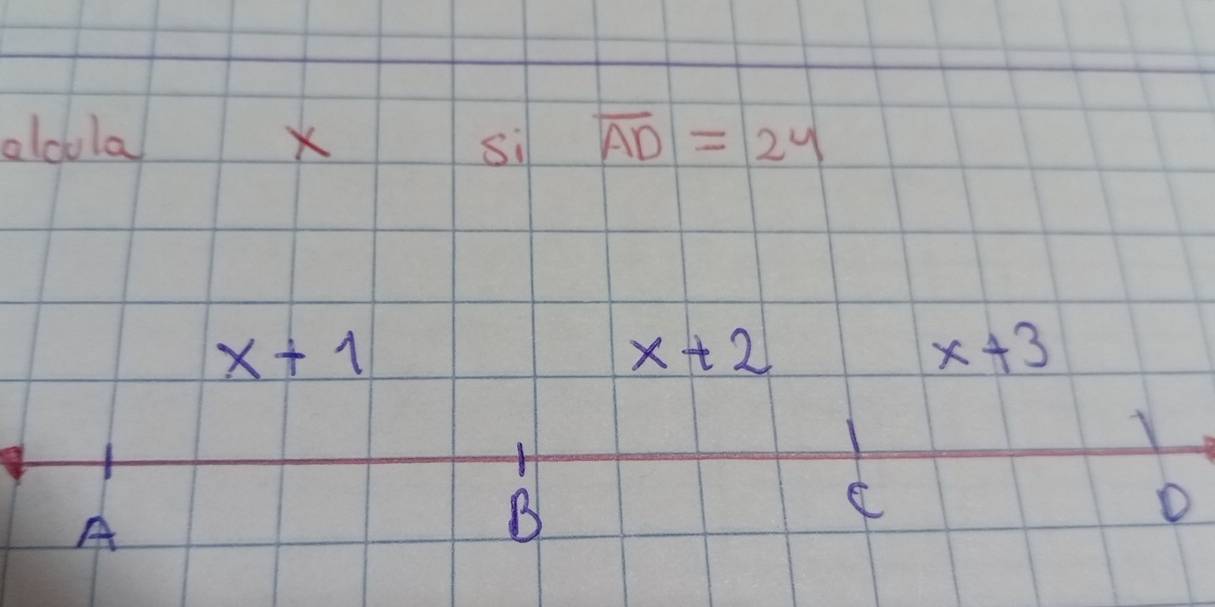 alcula x si AD = 24
x + 1 x + 2 x + 3
A B C D